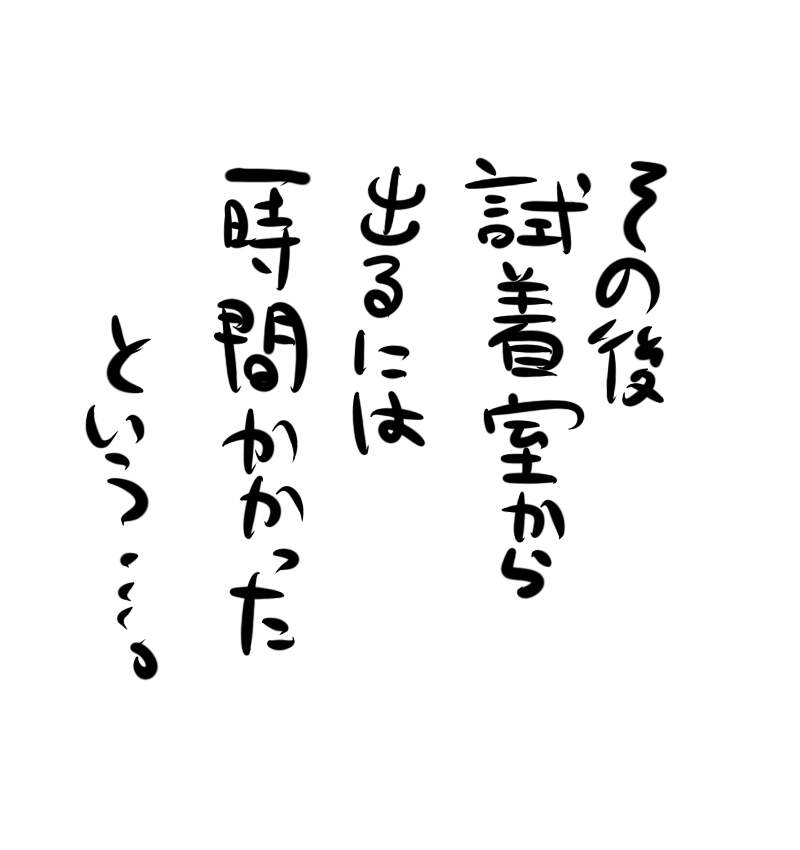 その後
試着室から
出るには
一時間かかった
という…。